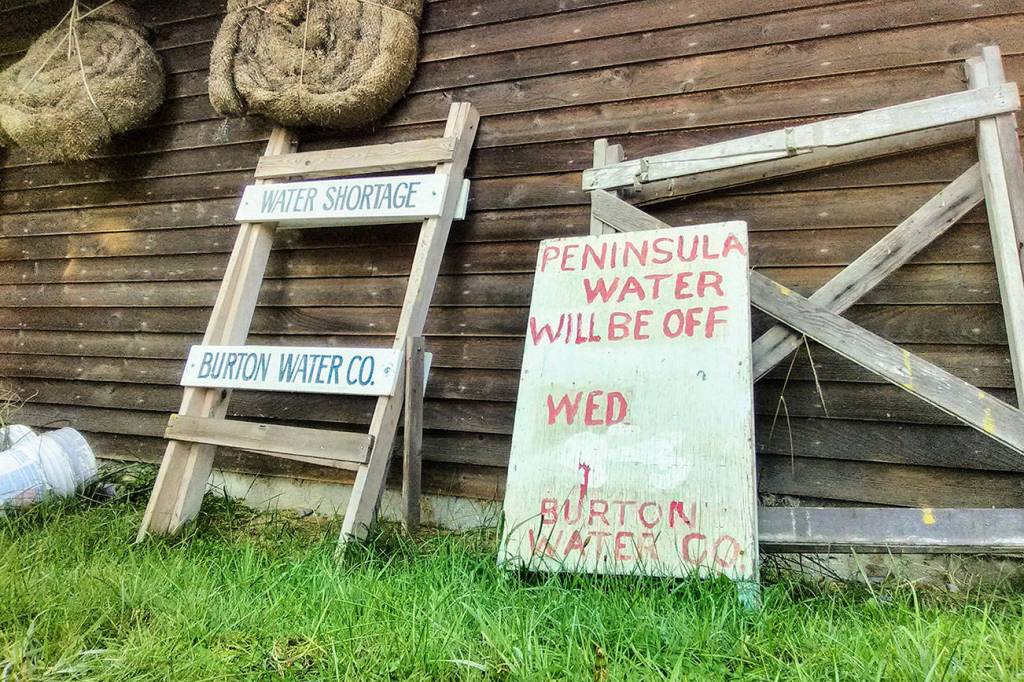 WATER SHORTAGE
BURTON WATER CO.
PENINSULA
WATER
WILL BE OFF
WED.
BURTON
WATER CO.